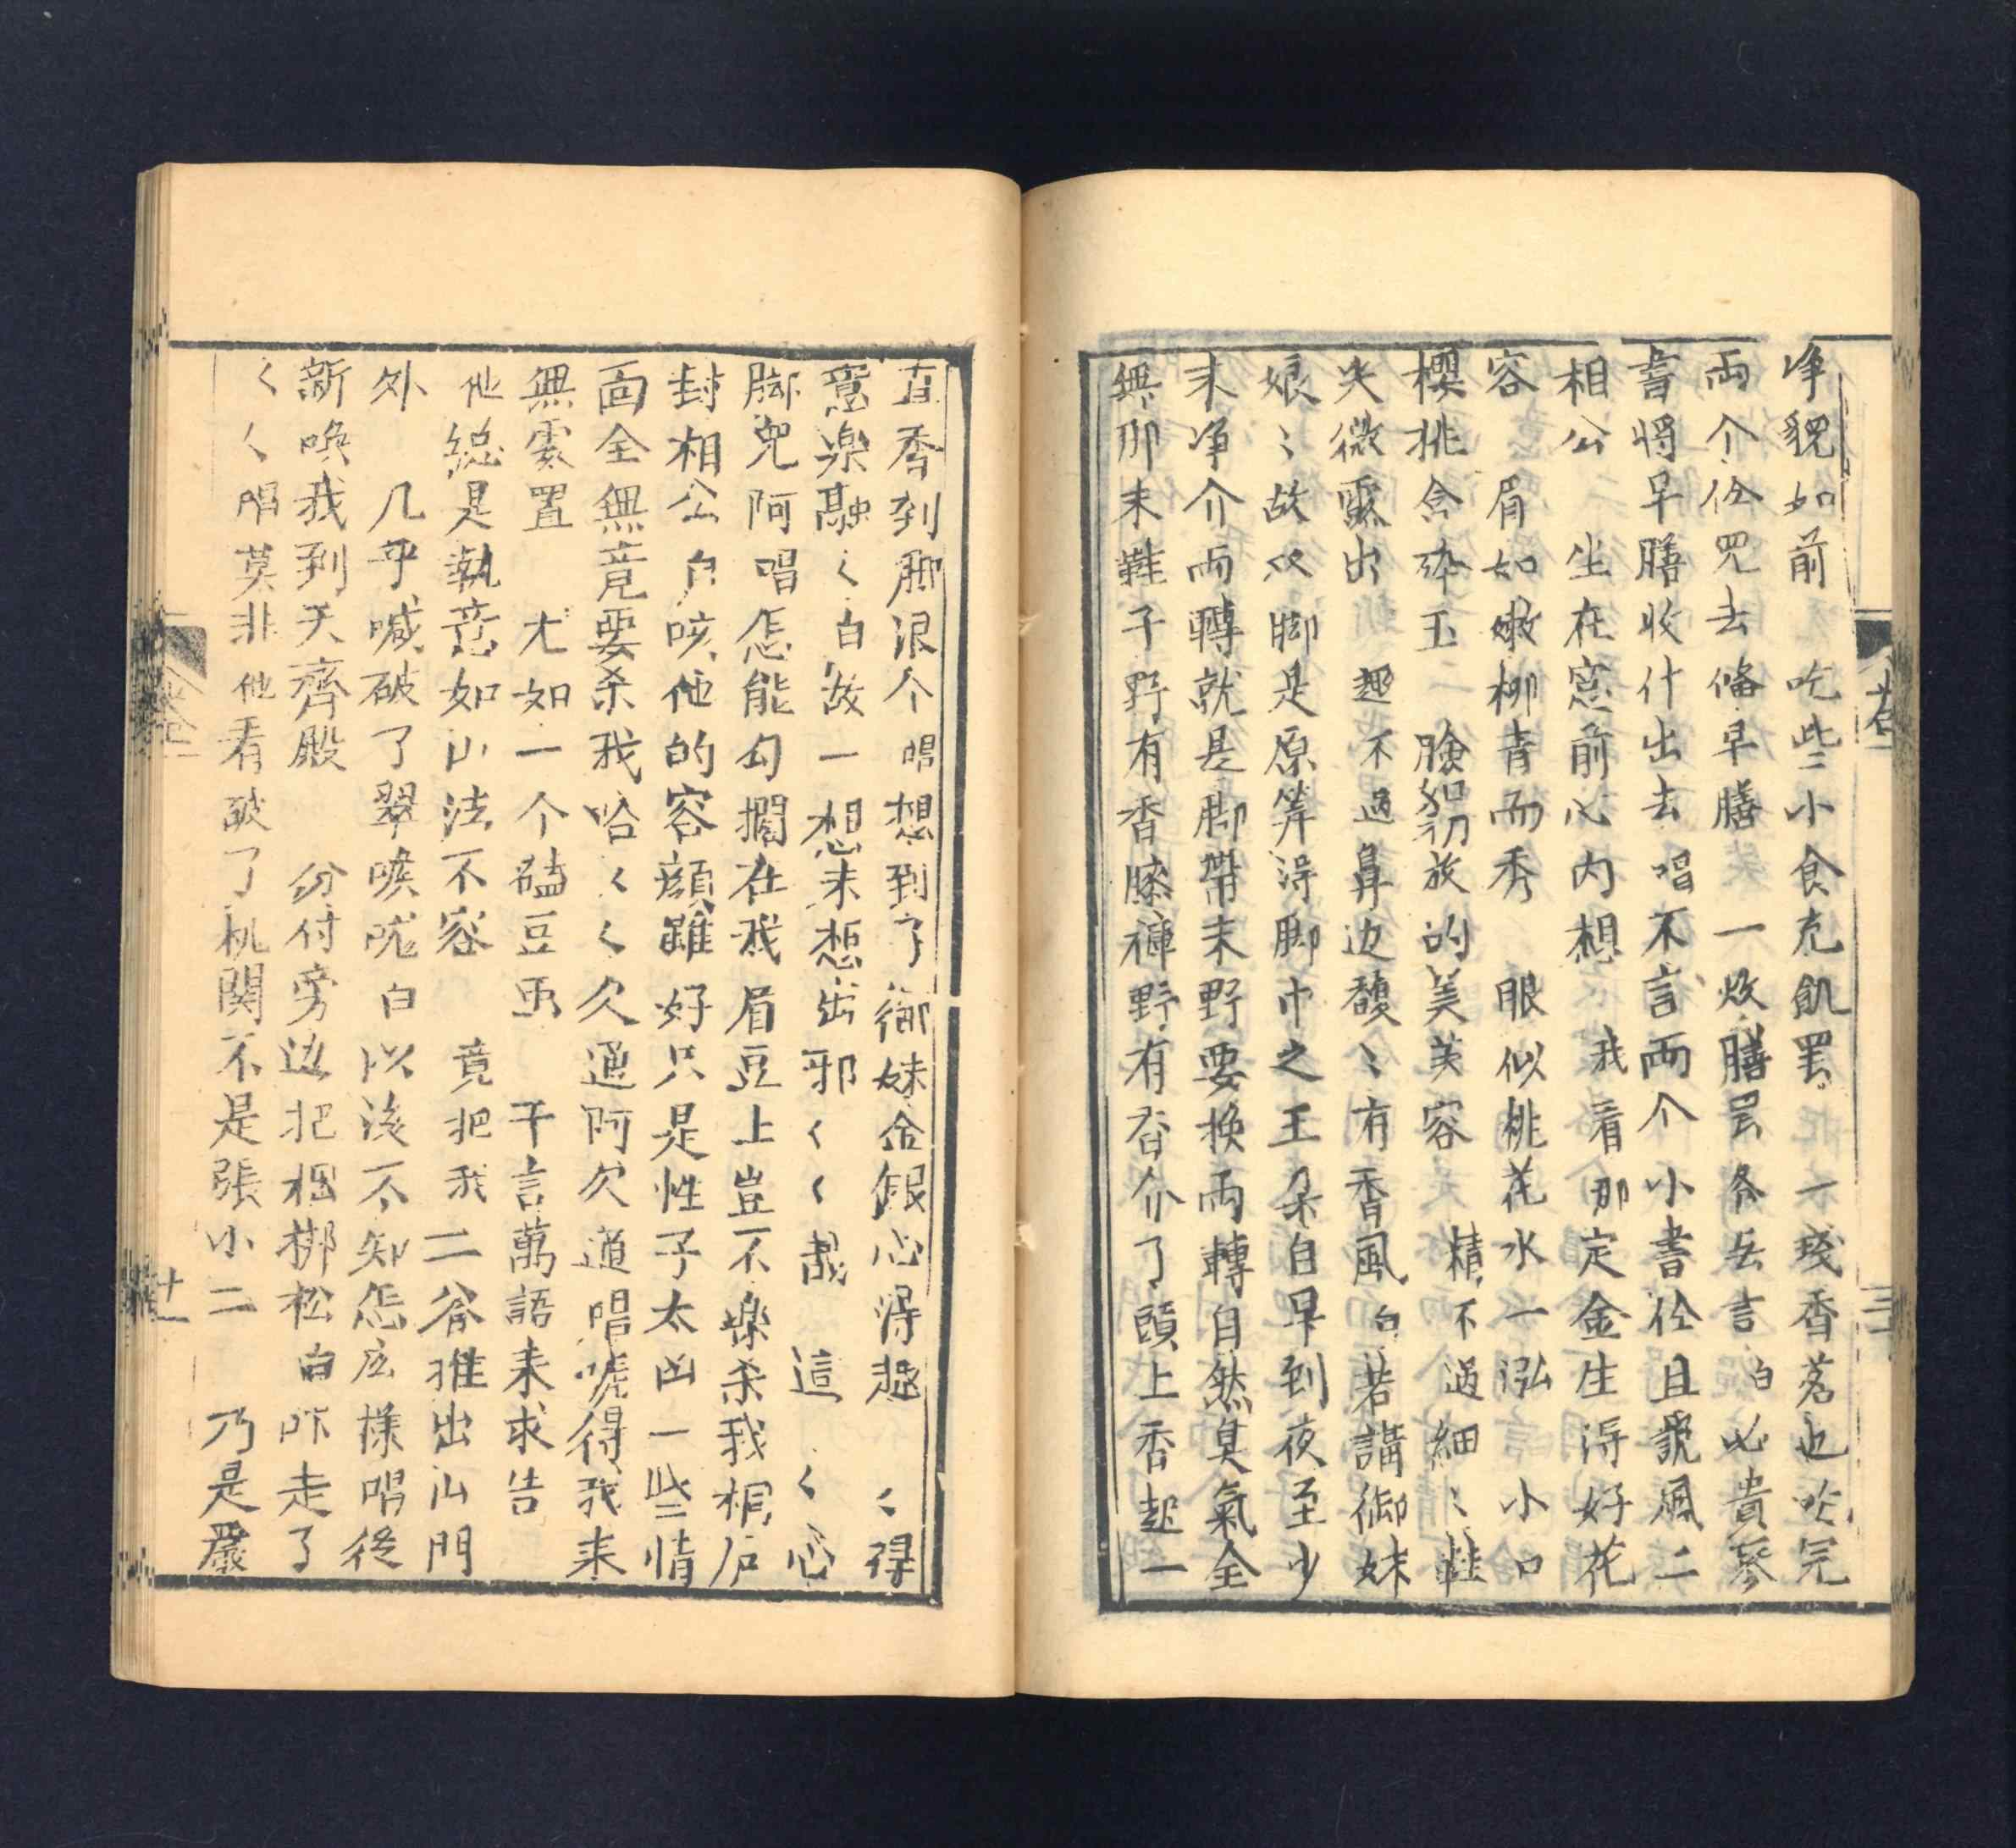 净貌如前 吃些小食充飢罢 一盞香茗也吹完
両个伩児去偹早膳 一炊膳 言 白 必貴琴
書將早膳收什出去 唱不言両个小書伩且說風二
相公 坐在窓前心内想 我看那定金生得好花
容 眉如嫩柳青而秀 眼似桃花水一泓 小口
櫻桃含砕玉 臉 放的美芙容 精不過細〻鞋
尖微露出 趐不過鼻边馥〻有香風 白若講御妹
娘〻故双脚是原筭得脚巾之王 自早到夜至少
末净介両轉就是脚帶末野要换両轉自然臭氣全
無那末鞋子野有香膝褲野有香介了頭上香起一
直香到脚浪个 唱想到了御妹金銀心得趐 〻得
意楽融〻白故一想末想出邪〻〻哉 這 〻心
脚兜阿唱怎能勾擱在我眉豆上豈不楽杀我桐庐
封相公白咳他的容顔雖好只是性子太凶一些情
面全無竟要杀我哈〻〻欠通阿欠通唱 得我来
無處置 尤如一个磕豆虫 千言萬語来求告
他総是執意如山法不容 竟把我二爷推出山門
外 几乎喊破了翠喉咙白以後不知怎庅樣唱後
新唤我到天齊殿 分付旁边把捆梆松白吓走了
〻〻唱莫非他看破了机関不是張小二 乃是嚴
卷一
十一